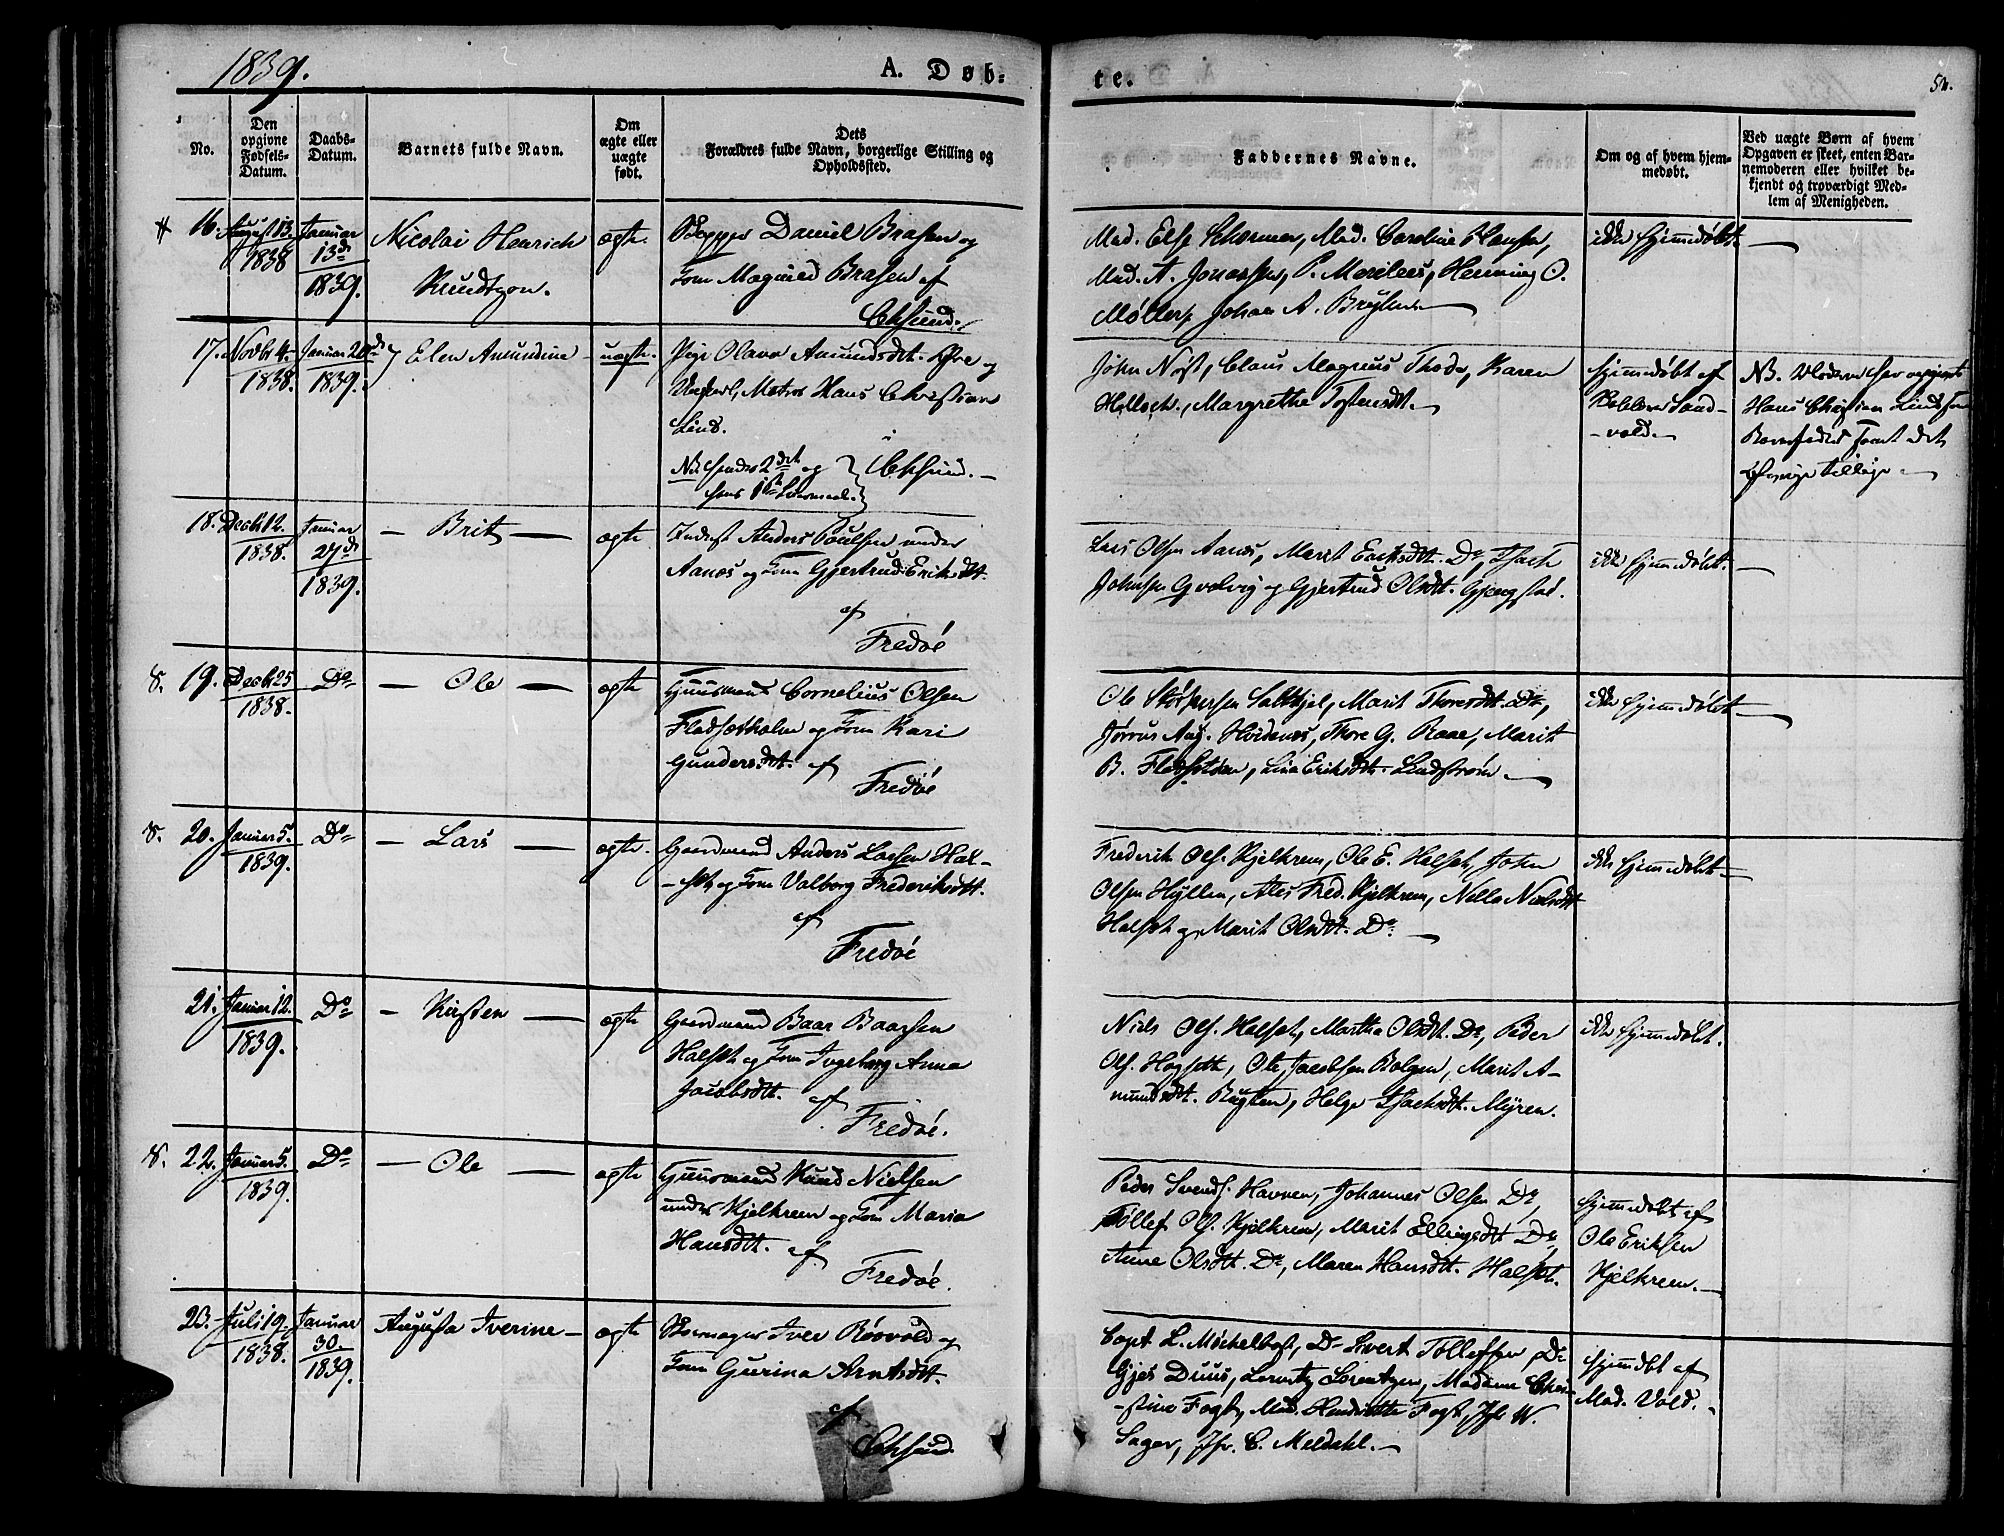 1839.
A. Døb-
te.
52.
No.
Den opgivne Fødsels-Datum.
Daabs-Datum.
Barnets fulde Navn.
Om ægte eller uægte født.
Dets
Forældres fulde Navn, borgerlige Stilling og
Opholdssted.
Faddernes Navne.
Om og af hvem hjem-
medøbt.
Ved uægte Børn af hvem
Opgaven er skeet, enten Bar-
nemoderen eller hvilket be-
kjendt og troværdigt Med-
lem af Menigheden.
16. August 13. 1838 Januar 13de 1839.
Nicolai Henrich
Knudtzon.
ægte.
Skipper Daniel Brasen og
Kone Magnild Brasen af
Chsund.
Mad. Else Schermer, Mad. Caroline Hansen,
Mad. A. Jonassen, P. Morilees, Henning O.
Møller, Johan A. Brylun.
ikke hjemmedøbt.
17. Novbr 4. 1838. Januar 20de 1839.
Elen Amundine
uægte.
Pige Olava Amundsdt. Øre og
Ungkarl, Matros Hans Christian
Lind.
NB hendes 2det og
hans 1ste Leiermaal.
i Chsund.
John Nøst, Claus Magnus Thode, Karen
Holloch, Margrethe Tostensdt.
hjemmedøbt af
Sand-
vold.
NB. Moderen har opgivet
Hans Christian Lind som
Barnefader samt det
Øvrige tillige
18. Decbr 12. 1838. Januar 27de 1839.
Brit
ægte
Inderst Anders Poulsen under
Aanes og Kone Gjertrud Eriksdt.
af
Fredøe
Lars Olsen Aanes, Marit Eriksdt. Do, Isach
Johnsen Qvalvig og Gjertrud Olsdt. Gjengstøe.
ikke hjemmedøbt.
8. 19. Decbr 25 1838. Do
Ole
ægte
Huusmand Cornelius Olsen
Fladsetholm og Kone Kari
Gundersdt. af
Fredøe
Ole Størkersen Saltkjel, Marit Thoresdt. Do,
Jørous Aug. Hvidenes, Thore G. Raae, Marit
B. Fladset, Lina Eriksdt. Lindstrøm.
ikke hjemmedøbt
8. 20. Januar 5. 1839. Do
Lars
ægte.
Gaardmand Anders Larsen Hal-
set og Kone Valborg Frederiksdt.
af
Fredøe
Frederik Ols. Kjelkrem, Ole E. Halset, John
Olsen Hyllen, Ales Fred. Kjelkrem, Nille Nielsdt
Halset og Marit Olsdt. Do
ikke hjemmedøbt
21. Januar 12. 1839. Do
Kirsten
ægte
Gaardmand Baar Baarsen
Halset og Kone Ingeborg Anna
Jacobsdt. af
Fredøe.
Niels Ols. Halset, Martha Olsdt. Do, Peder
Ols. Hogseth, Ole Jacobsen Bolgen, Marit A-
mundsdt. Rugten, Helge Isachsdt. Myren.
ikke hjemmedøbt.
8. 22. Januar 5. 1839. Do
Ole
ægte
Huusmand Knud Nielsen
under Kjelkrem og Kone Maria
Hansdt. af
Fredøe.
Peder Svends. Havnen, Johannes Olsen Do,
Tollef Ols. Kjelkrem, Marit Ellingsdt Do,
Anne Olsdt. Do, Maren Hansdt. Halset.
hjemmedøbt af
Ole Eriksen
Kjelkrem.
23. Juli 19. 1838. Januar 30. 1839.
Augusta Iverine
ægte
Skomager Iver Røsvold og
Kone Gurina Arntsdt.
af
Chsund
Capt. L. Møchelbost, Do Sivert Tollefsen, Do
Gjes Duus, Lorentz Lorentzen, Madame Chri-
stine Fogt, Mad. Henriette Fogt, Jfr. W.
Sager, Jfr. C. Meldahl.
hjemmedøbt af
Mad. Vold.